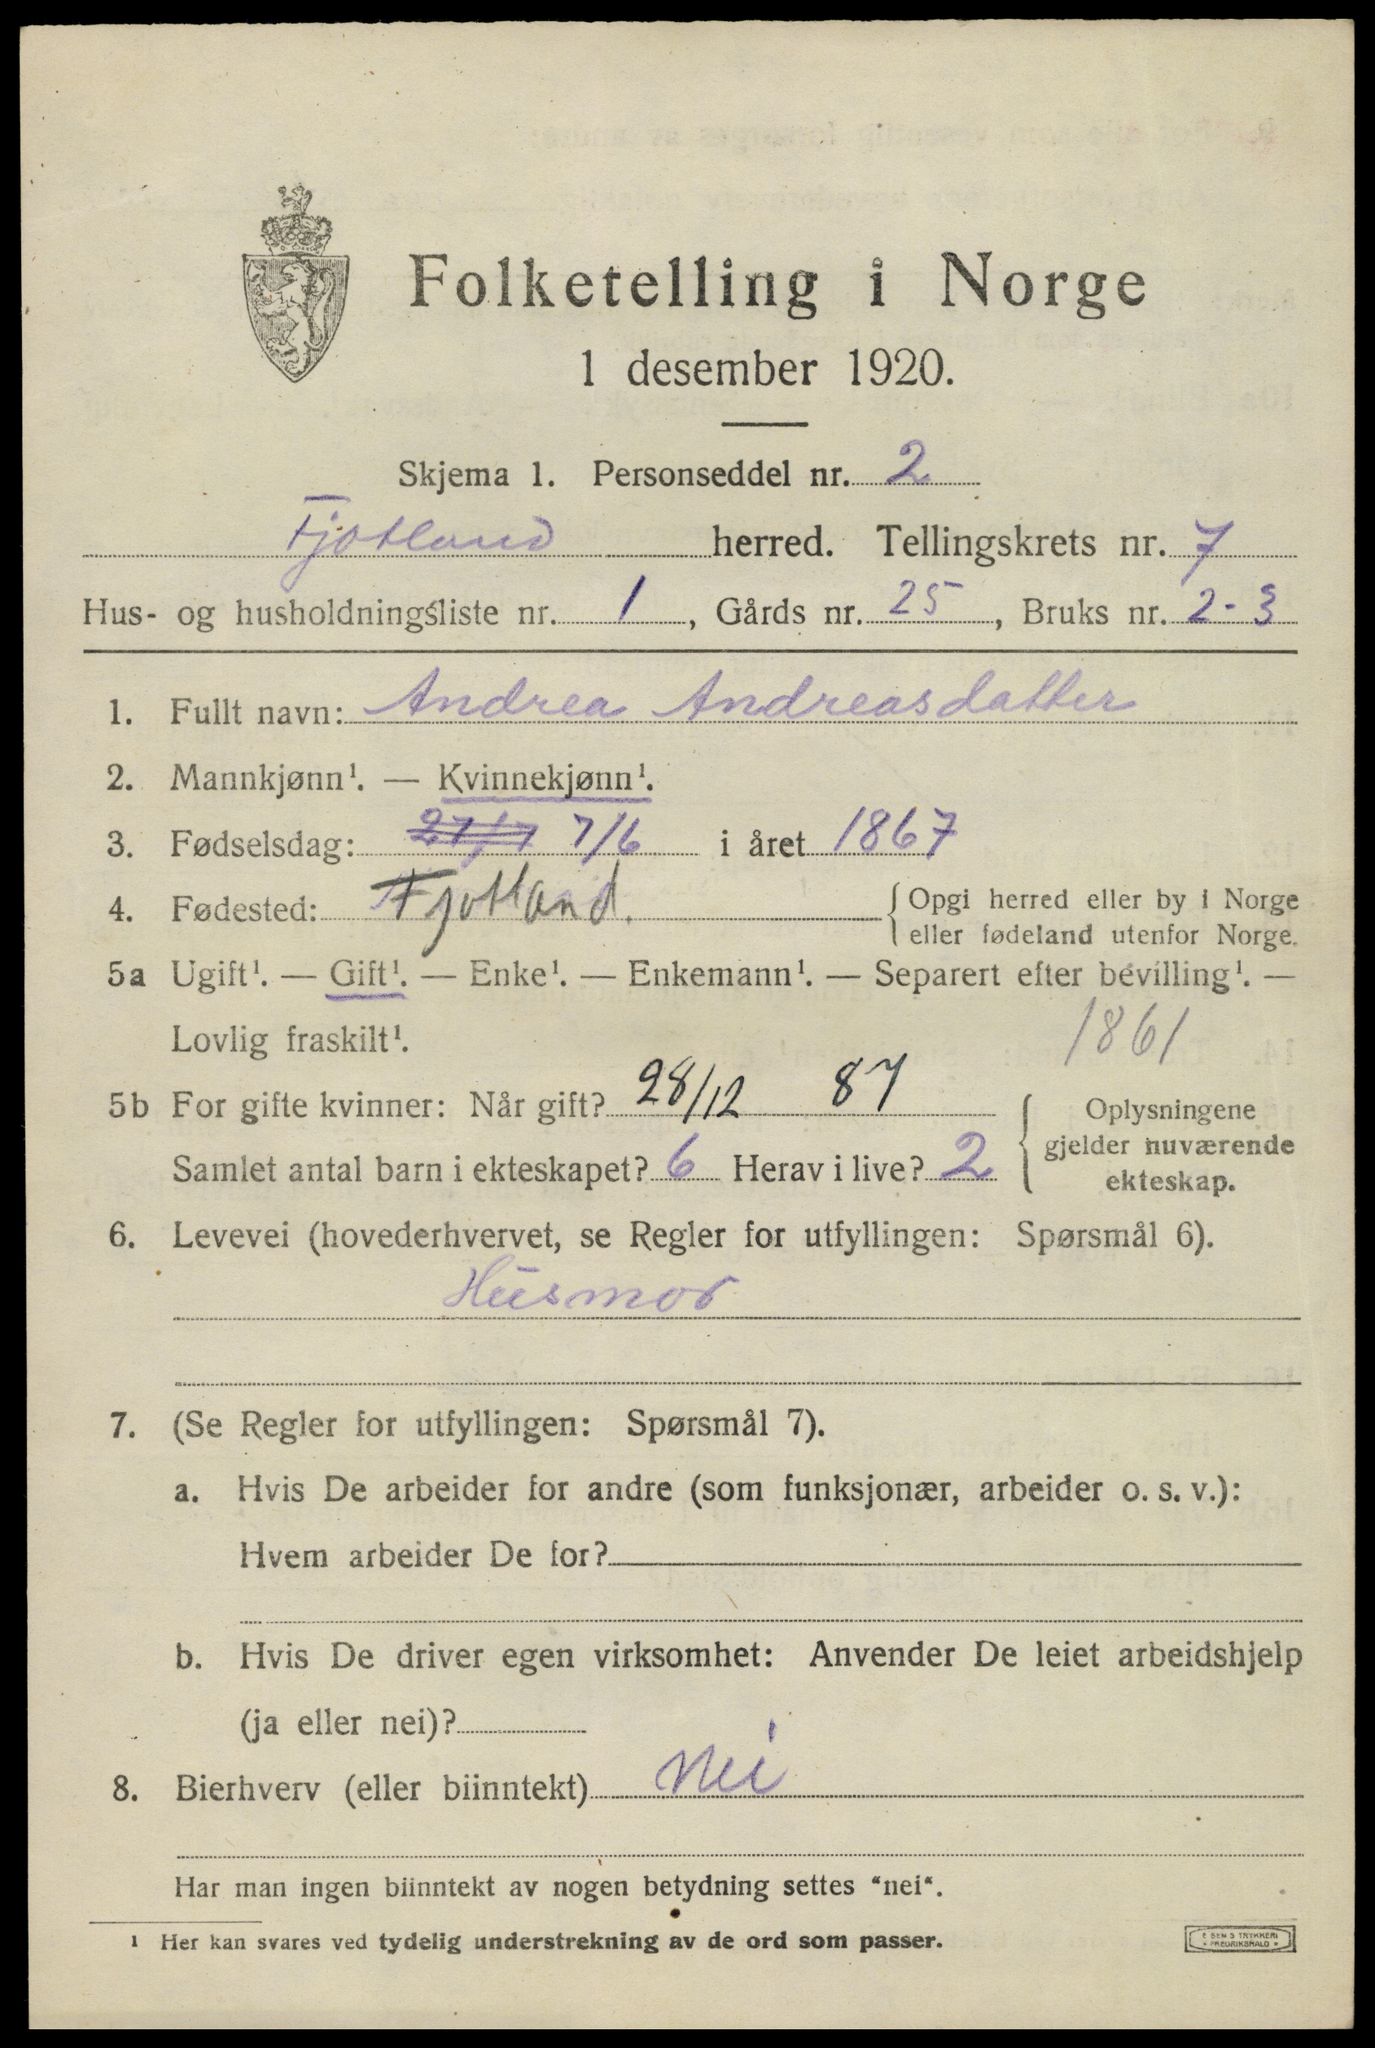 Folketelling i Norge
1 desember 1920.
Skjema 1. Personseddel nr. 2
Fjotland herred. Tellingskrets nr. 7
Hus- og husholdningsliste nr. 1, Gårds nr. 25, Bruks nr. 2-3
1. Fullt navn: Andrea Andreasdatter
2. Mannkjønn¹. — Kvinnekjønn¹.
3. Fødselsdag: 7/6 i året 1867
4. Fødested: Fjotland. { Opgi herred eller by i Norge
eller fødeland utenfor Norge.
5a Ugift¹. — Gift¹. — Enke¹. — Enkemann¹. — Separert efter bevilling¹. —
Lovlig fraskilt¹. 1861
5b For gifte kvinner: Når gift? 28/12 87
Samlet antal barn i ekteskapet? 6 Herav i live? 2
{ Oplysningene
gjelder nuværende
ekteskap.
6. Levevei (hovederhvervet, se Regler for utfyllingen: Spørsmål 6).
Husmor
7. (Se Regler for utfyllingen: Spørsmål 7).
a. Hvis De arbeider for andre (som funksjonær, arbeider o. s. v.):
Hvem arbeider De for?
b. Hvis De driver egen virksomhet: Anvender De leiet arbeidshjelp
(ja eller nei)?
8. Bierhverv (eller biinntekt) Nei
Har man ingen biinntekt av nogen betydning settes "nei".
¹ Her kan svares ved tydelig understrekning av de ord som passer.
TRYKKERI
FREDRIKSHALD